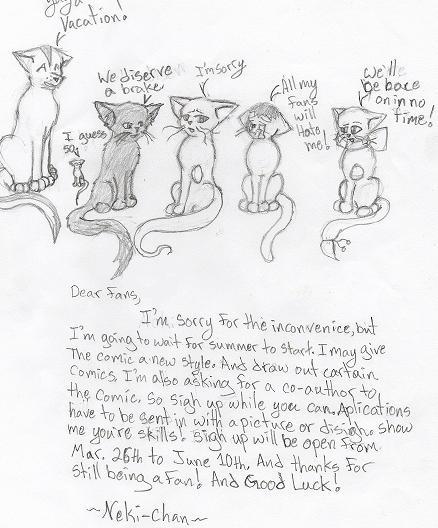 Vacation!
We diserve
a brake
I'm sorry
I guess
so,
All my
fans
will
Hate
me!
We'll
be bace
on in no
time!
Dear Fans,
I'm sorry for the inconvenice, but
I'm going to wait for summer to start. I may give
The comic a new style. And draw out cartain
Comics. I'm also asking for a co-author to
the Comic. So sigh up while you can. Aplications
have to be sent in with a picture or disigh. show
me you're skills! sigh up will be open from
Mar. 26th to June 10th. And thanks for
Still being a fan! And Good Luck!
~Neki-chan~